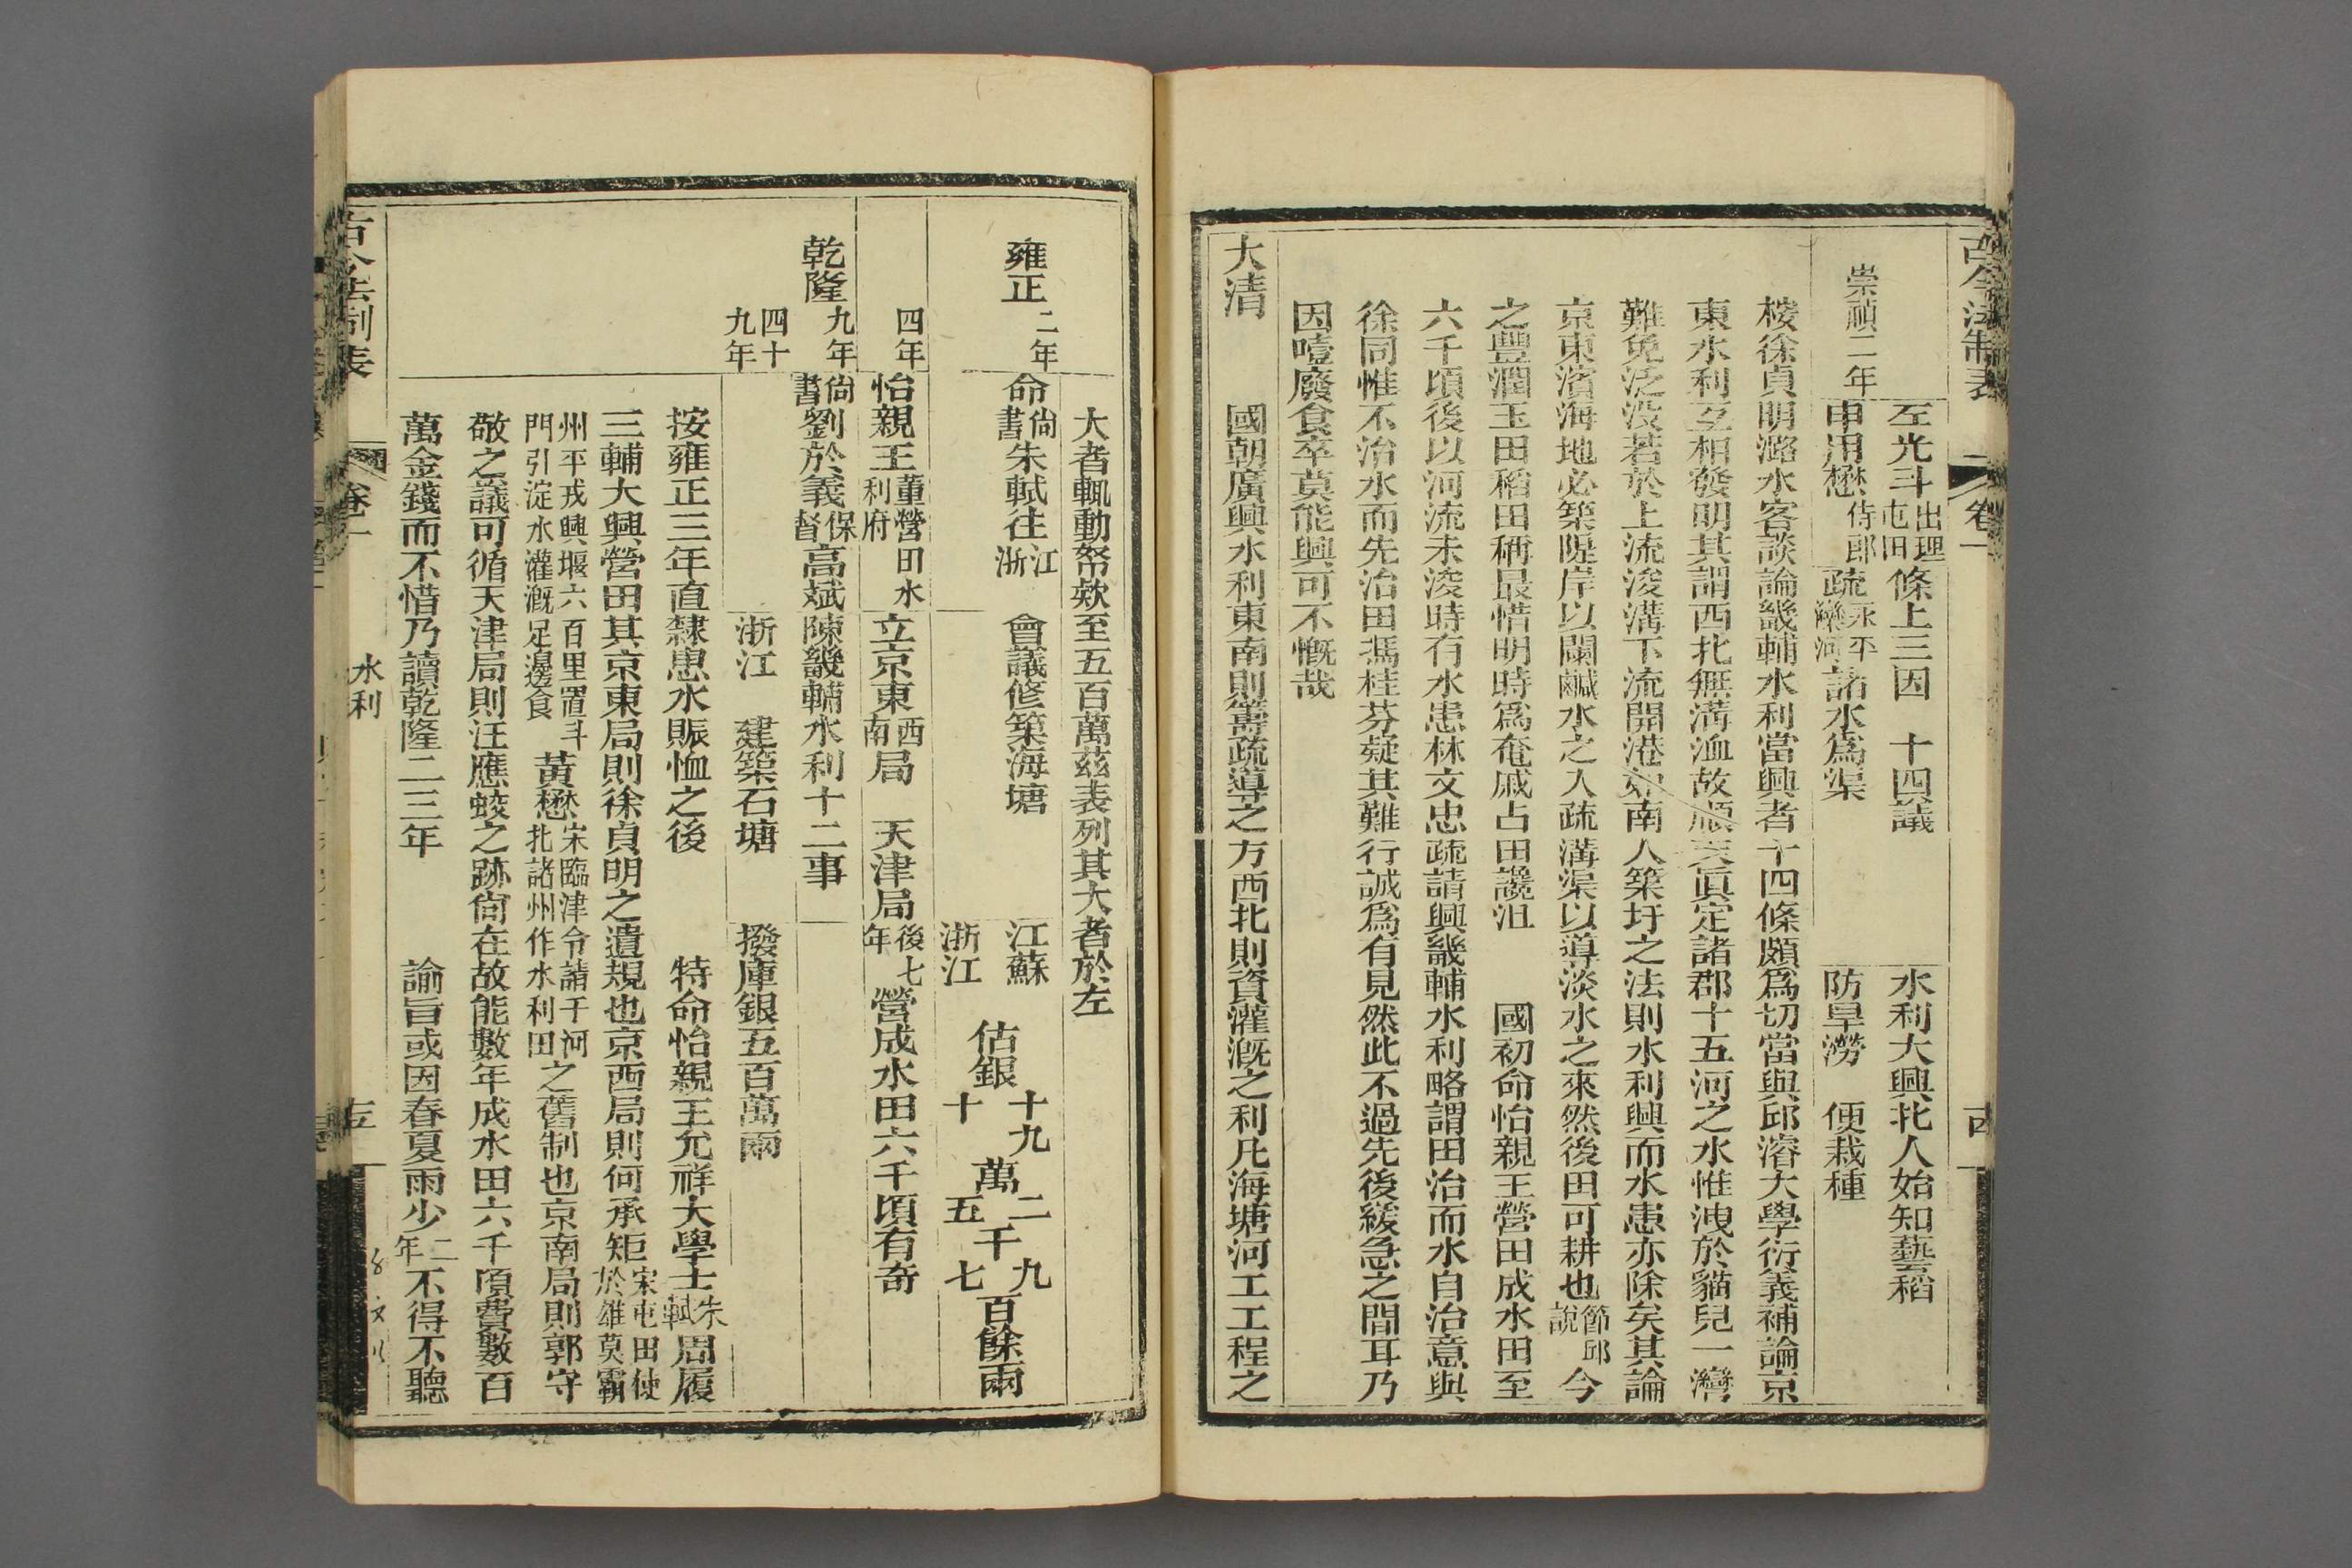 古今法制表
卷十
左光斗出理屯田條上三因 十四議 水利大興北人始知藝稻
崇禎二年 申用懋侍郎疏永平灤河諸水為渠 防旱澇 便栽種
桉徐貞明潞水客談論畿輔水利當興者十四條頗為切當與邱濬大學衍義補論京
東水利互相發明其謂西北無溝洫故順天真定諸郡十五河之水惟洩於貓兒一灣
難免泛没若於上流浚溝下流開港如南人築圩之法則水利興而水患亦除矣其論
京東濱海地必築隄岸以闌鹹水之入疏溝渠以導淡水之來然後田可耕也節邱說今
之豐潤玉田稻田稱最惜明時為奄戚占田讒沮 國初命怡親王營田成水田至
六千頃後以河流未浚時有水患林文忠疏請興畿輔水利略謂田治而水自治意與
徐同惟不治水而先治田馮桂芬疑其難行誠為有見然此不過先後緩急之間耳乃
因噎廢食卒莫能興可不慨哉
大清 國朝廣興水利東南則籌疏導之方西北則資灌溉之利凡海塘河工工程之
大者輒動帑款至五百萬茲表列其大者於左
雍正二年 命尚書朱軾往江浙 會議修築海塘 江蘇浙江 估銀十九十萬二五千九七百餘兩
四年 怡親王董營田水利府 立京東西南局 天津局 後七年營成水田六千頃有奇
乾隆九年 尚書劉於義保督高斌陳畿輔水利十二事
四十九年 浙江 建築石塘 撥庫銀五百萬兩
按雍正三年直隸患水賑恤之後 特命怡親王允祥大學士朱軾周履
三輔大興營田其京東局則徐貞明之遺規也京西局則何承矩宋屯田使於雄莫霸
州平戎興堰六百里置斗門引淀水灌溉足邊食 黃懋宋臨津令請于河北諸州作水利田之舊制也京南局則郭守
敬之議可循天津局則汪應蛟之跡尚在故能數年成水田六千頃費數百
萬金錢而不惜乃讀乾隆二三年 諭旨或因春夏雨少二年不得不聽
古今法制表
卷十
水利